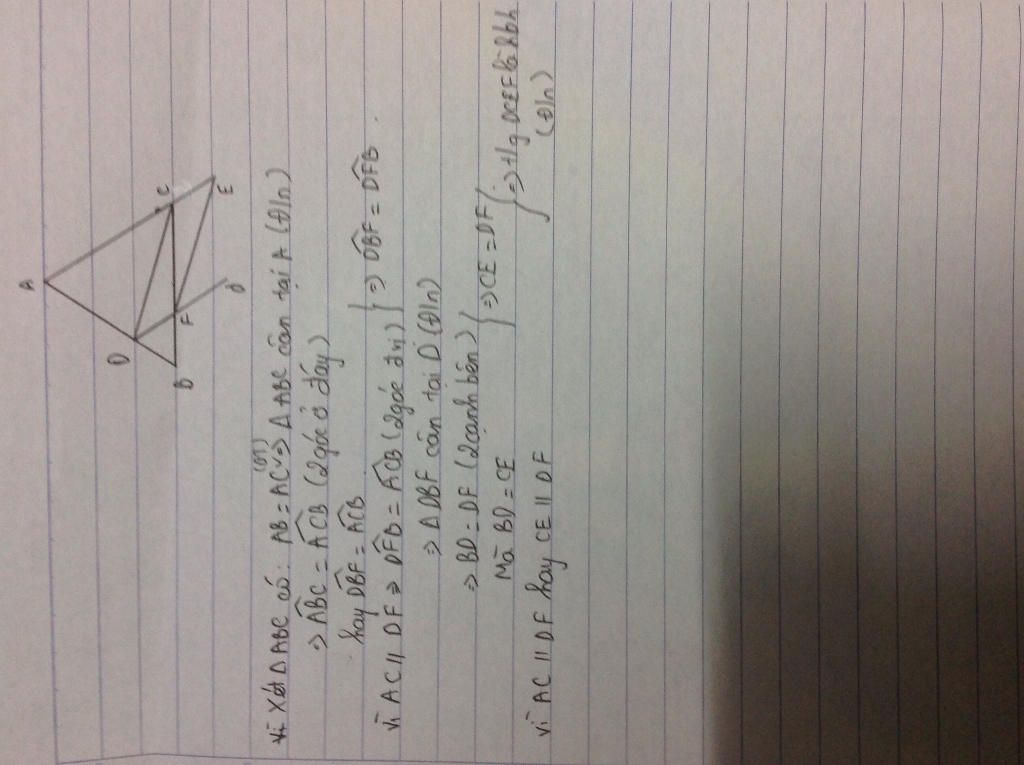 A
D
B
F
C
E
Xét ΔABC có: AB = AC (GT) => ΔABC cân tại A (Đ/n)
=> ABC = ACB (2 góc ở đáy)
hay DBF = ACB
Vì AC // DF => DFB = ACB (2 góc đvị) } => DBF = DFB
=> ΔDBF cân tại D (Đ/n)
=> BD = DF (2 cạnh bên)
Mà BD = CE } => CE = DF
Vì AC // DF hay CE // DF } => t/g DCEF là hbh
(Đ/n)